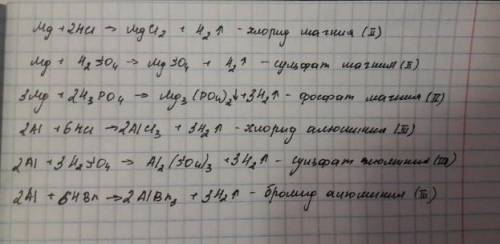 Mg + 2HCl → MgCl₂ + H₂↑ - хлорид магния (II)
Mg + H₂SO₄ → MgSO₄ + H₂↑ - сульфат магния (II)
3Mg + 2H₃PO₄ → Mg₃(PO₄)₂↓ + 3H₂↑ - фосфат магния (II)
2Al + 6HCl → 2AlCl₃ + 3H₂↑ - хлорид алюминия (III)
2Al + 3H₂SO₄ → Al₂(SO₄)₃ + 3H₂↑ - сульфат алюминия (III)
2Al + 6HBr → 2AlBr₃ + 3H₂↑ - бромид алюминия (III)